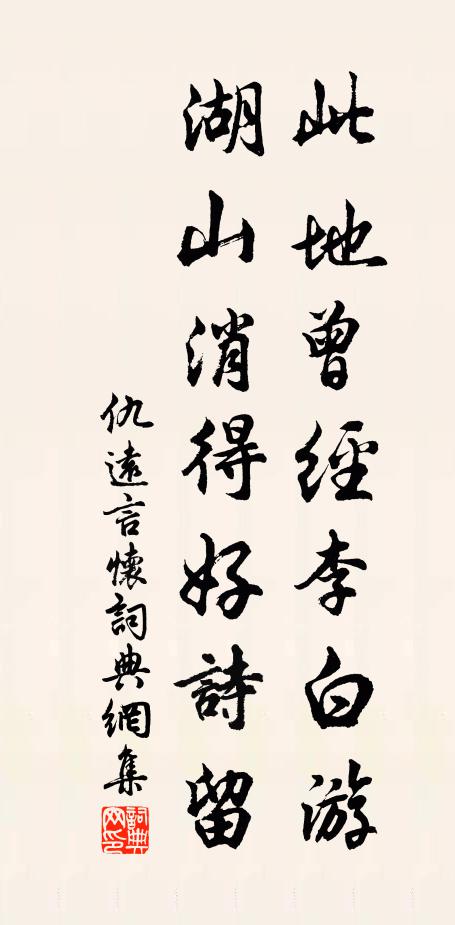 此地曾經李白游
湖山消得好詩留
仇遠言懷詞典網集
詞典網印